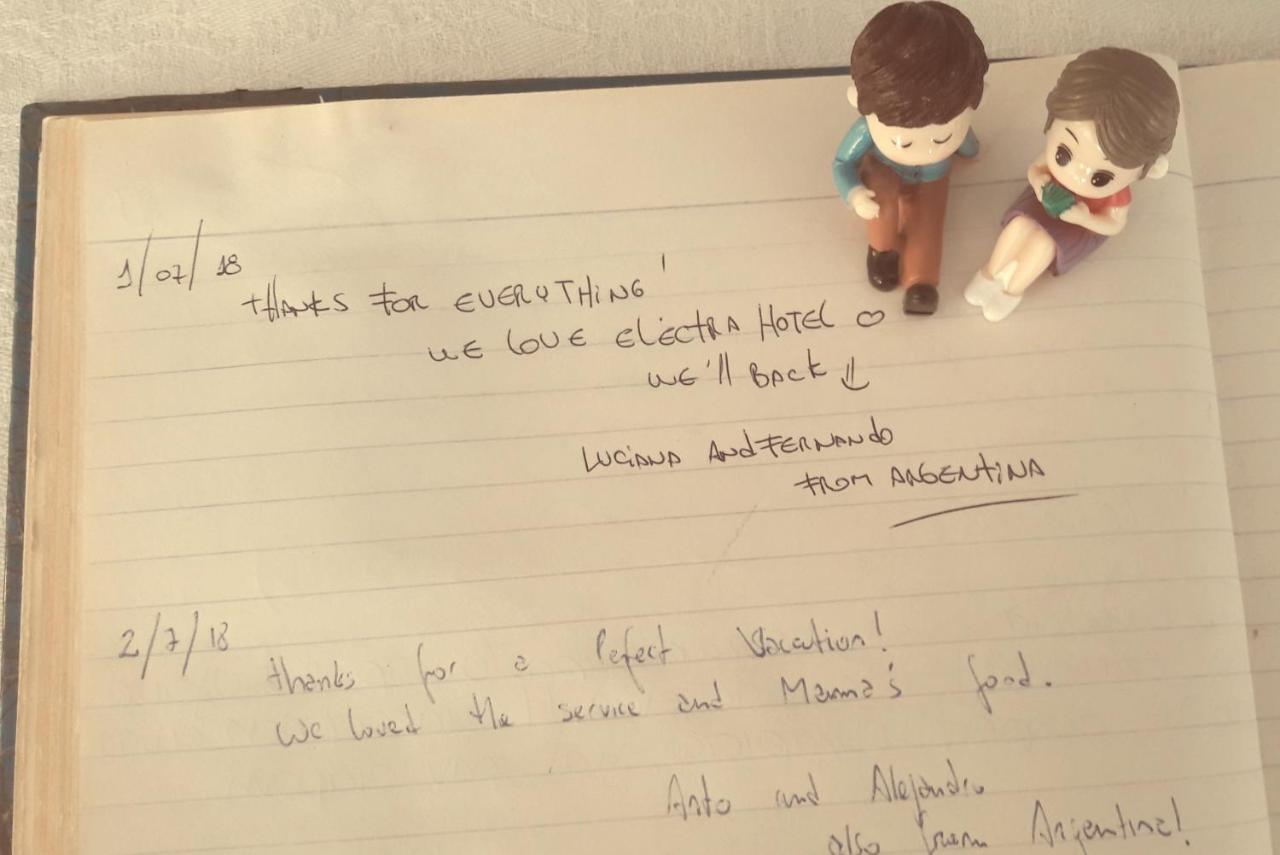 1/07/18
THANKS FOR EVERYTHING!
WE LOVE ELECTRA HOTEL ♡
WE'll BACK ↓
LUCIANA AND FERNANDO
FROM ARGENTINA
2/7/18
thanks for a Pefect Vacation!
We loved the service and Mamma's food.
Anto and Alejandro
also from Argentina!